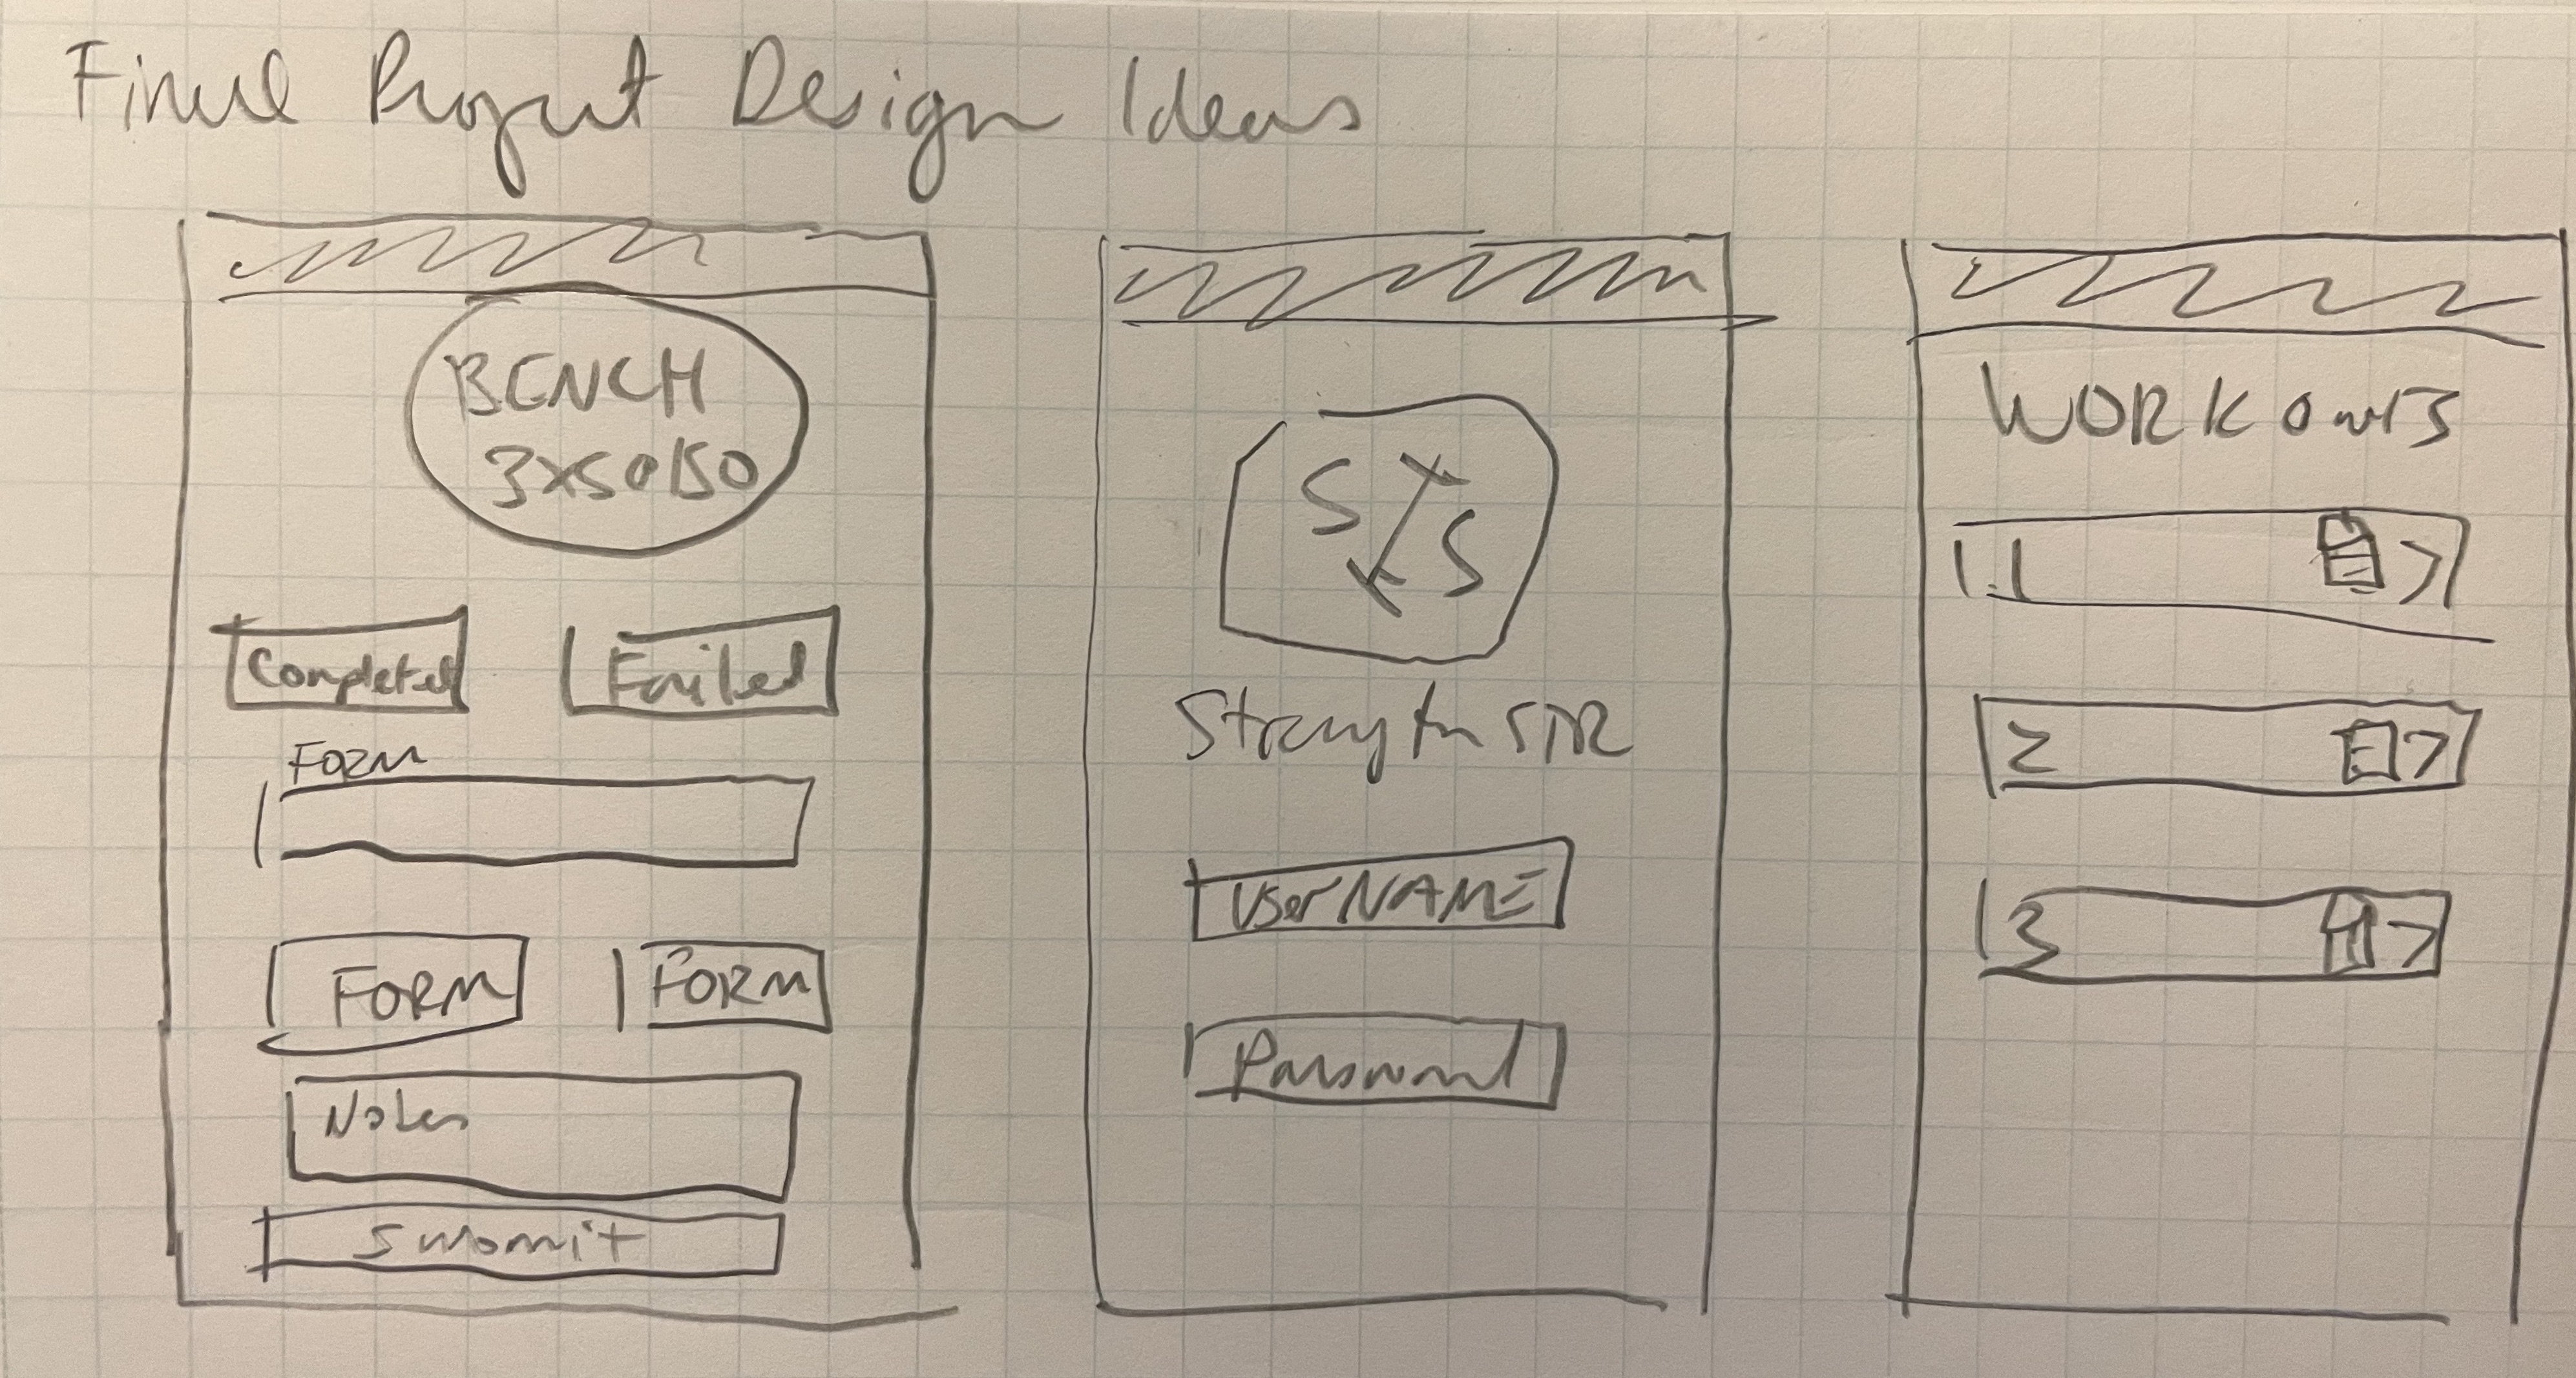 Final Project Design Ideas
BENCH
3x5@150
Completed
Failed
FORM
FORM
FORM
Notes
Submit
S
S
Strength
UserNAME
Password
Workouts
1
2
3